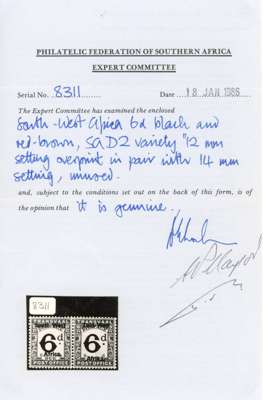 PHILATELIC FEDERATION OF SOUTHERN AFRICA
EXPERT COMMITTEE
Serial No. 8311 Date 18 JAN 1986
The Expert Committee has examined the enclosed
South-West Africa 6d black and
red-brown, SA D2 variety "12 mm
setting overprint in pair with 14 mm
setting, unused.
and, subject to the conditions set out on the back of this form, is of
the opinion that it is genuine.
8311
TRANSVAAL TRANSVAAL
6d. 6d.
Africa. Africa.
POSTAGE POSTAGE